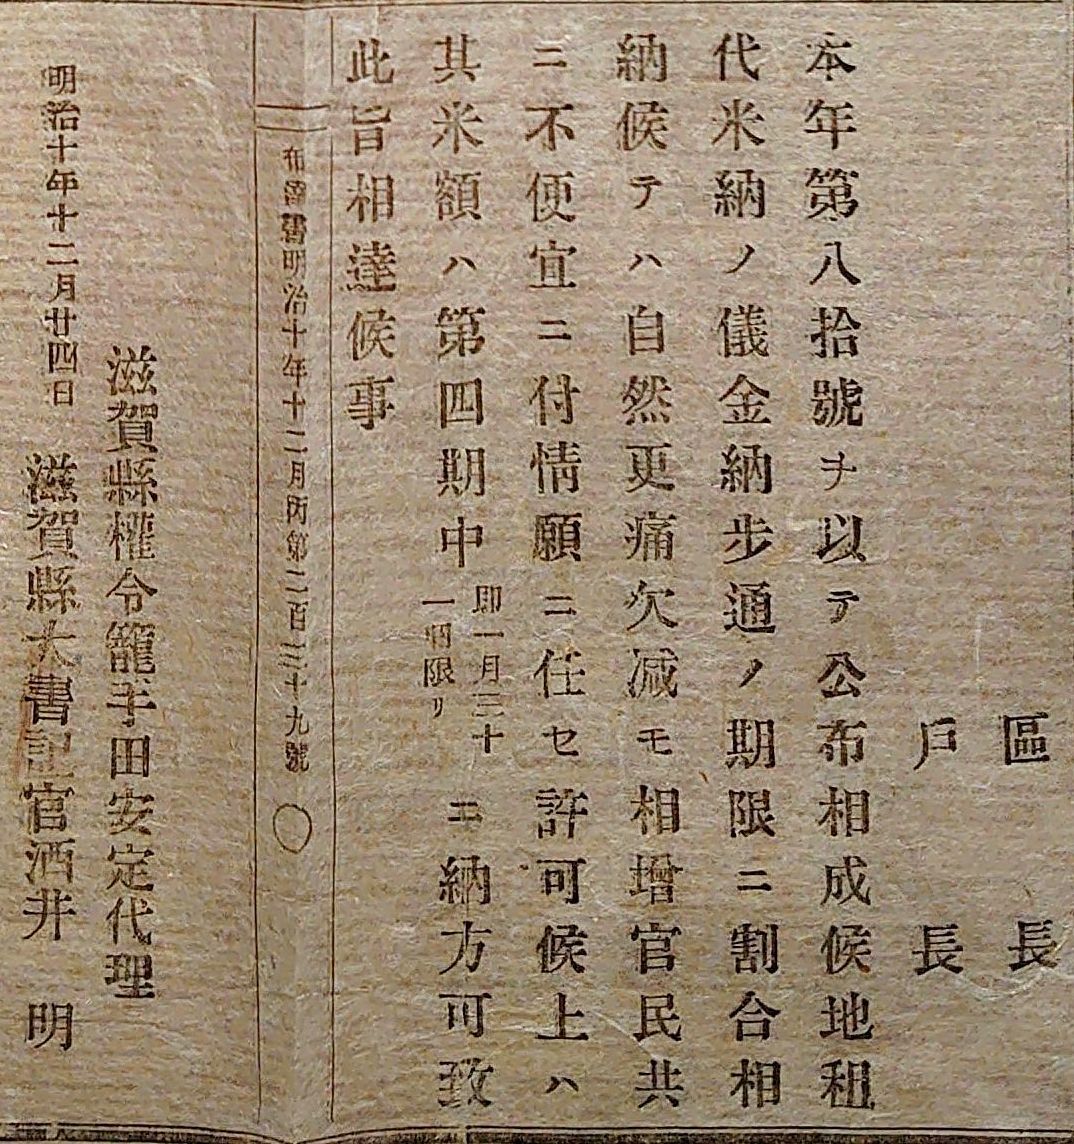 區長
戶長
本年第八拾號ヲ以テ公布相成候地租
代米納ノ儀金納步通ノ期限ニ割合相
納候テハ自然更痛欠减モ相增官民共
ニ不便宜ニ付情願ニ任セ許可候上ハ
其米額ハ第四期中
即一月三十
一日限リ
ニ納方可致
此旨相達候事
布達書明治十年十二月丙第二百三十九號
滋賀縣權令籠手田安定代理
明治十年十二月廿四日 滋賀縣大書記官酒井 明